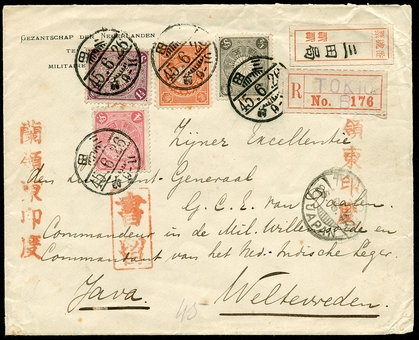 GEZANTSCHAP DER NEDERLANDEN
TE
MILITAIRE
三田局
R TOKIO
No. 6176
三田
45.6.26
三田
45.6.26
三田
45.6.26
三田
45.6.26
蘭領東印度
領東印度
書留
JAPAN
Zijner Excellentie
den Luitenant-Generaal
G. C. E. van Daalen
Commandeur in de Mil. Willemsorde en
Commandant van het Ned. Indische Leger.
Java.
Weltevreden.